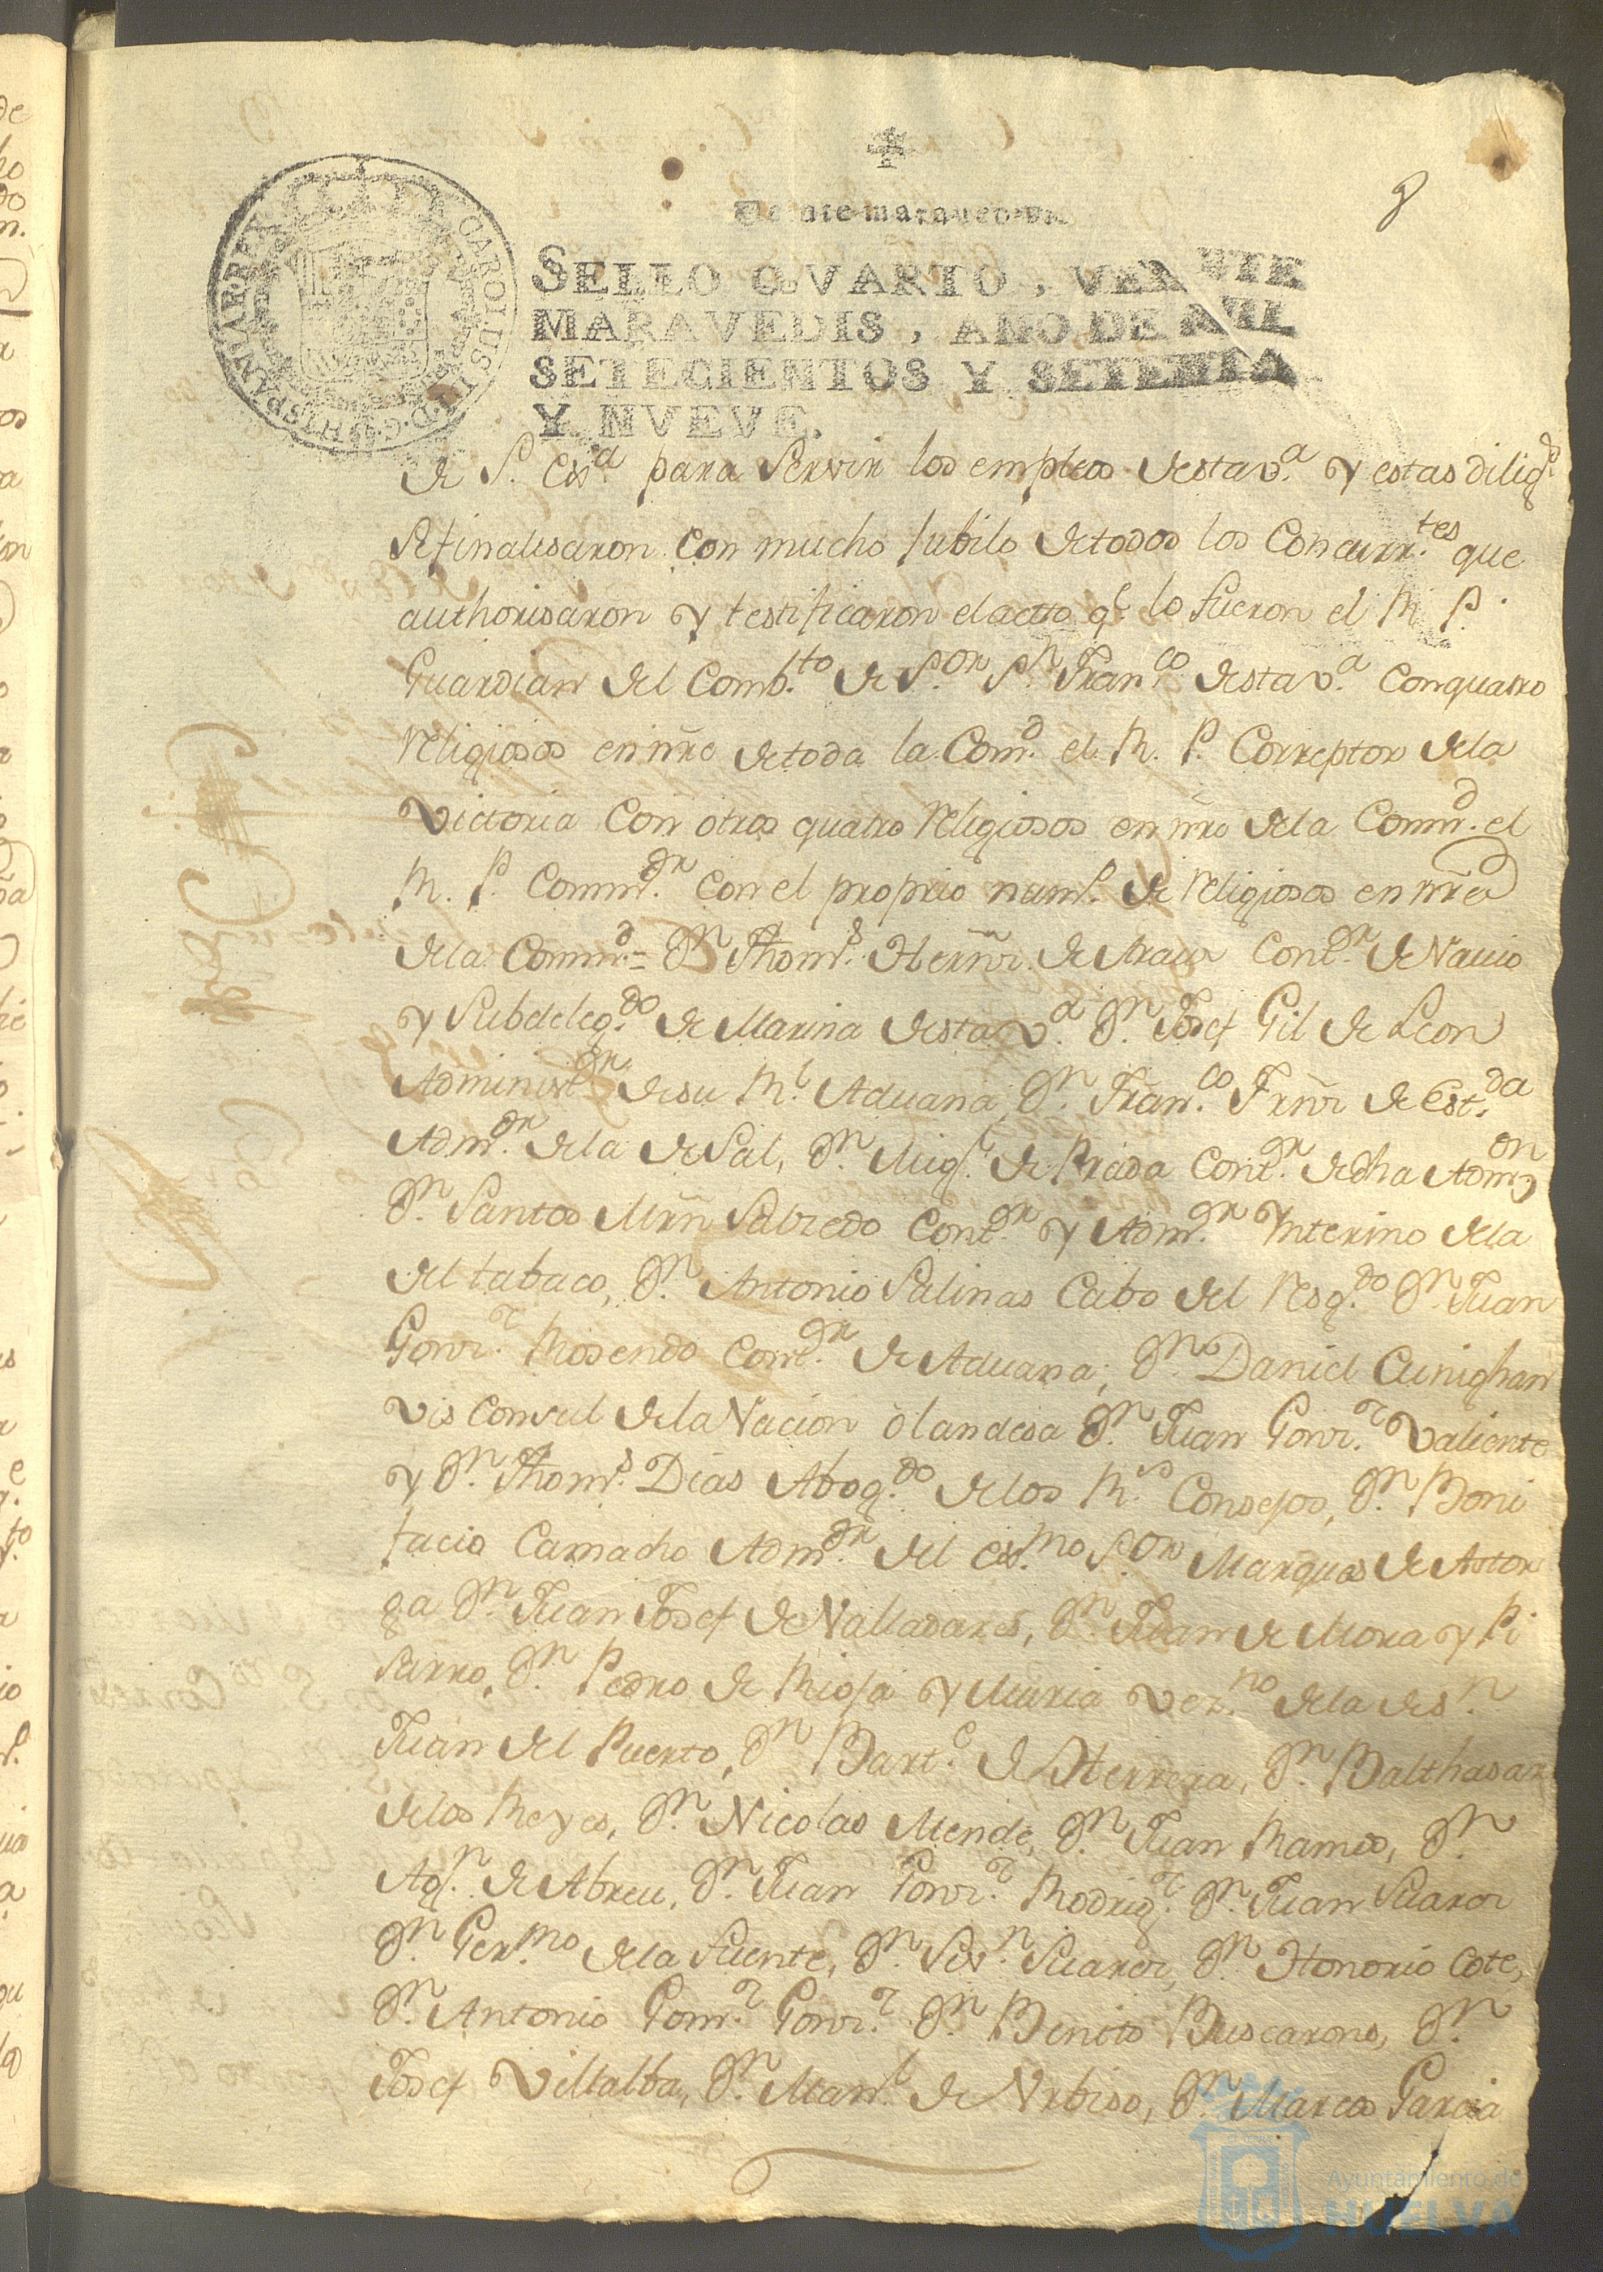 8
Veinte maravedis.
SELLO QVARTO, VEINTE
MARAVEDIS, AÑO DE MIL
SETECIENTOS Y SETENTA
Y NVEVE.
CAROLUS III D G HISPANIAR REX
de S. Exᵃ para Servir los empleos destavᵃ y estas diligˢ
Se finalisaron con mucho Jubilo detodos los Concurr.ᵗᵉˢ que
authorisaron y testificaron el acto qᵉ lo fueron el R. P.
Guardian del Comb.ᵗᵒ de S.ᵒʳ Sⁿ Fran.ᶜᵒ destavᵃ Con quatro
Religiosos en nr̃e detoda la Com.ᵈ el R. P. Correptor dela
Victoria Con otros quatro Religiosos en nr̃e dela Comm.ᵈ el
R. P. Comm.ᵒʳ con el proprio num.ᵒ de Religiosos en nr̃e
dela Comm.ᵈ = Dⁿ Thom.ˢ Hern̄z. de Arauz Cont.ᵒʳ de Navio
y Subdeleg.ᵈᵒ de Marina destavᵃ Dⁿ Josef Gil de Leon
Administ.ᵒʳ desu R.ˡ Aduana, Dⁿ Fran.ᶜᵒ Frn̄z de Est.ᵈᵃ
Adm.ᵒʳ dela de Sal, Dⁿ Mig.ˡ de Prada Cont.ᵒʳ de dha Adm.ᵒⁿ
Dⁿ Santos Mrn̄ Salzedo Cont.ᵒʳ y Adm.ᵒʳ Ynterino dela
del tabaco, Dⁿ Antonio Salinas Cabo del Resg.ᵈᵒ Dⁿ Juan
Gonz.ᶻ Rosendo Cont.ᵒʳ de Aduana, Dⁿ Daniel Cunighan
Vis Consul dela Nacion olandesa Dⁿ Juan Gonz.ᶻ Valiente
y Dⁿ Thom.ˢ Dias Abog.ᵈᵒ delos R.ˢ Consejos, Dⁿ Boni
facio Camacho Adm.ᵒʳ del ex.ᵐᵒ S.ᵒʳ Marques de Astor
ga Dⁿ Juan Josef de Valladares, Dⁿ Juan de Mora y Pi
sarro, Dⁿ Pedro de Rioja y Muria Vez.ⁿᵒ dela de Sⁿ
Juan del Puerto, Dⁿ Bart.ᵉ de Herrera, Dⁿ Balthasar
delos Reyes, Dⁿ Nicolas Mende, Dⁿ Juan Ramos, Dⁿ
Ag.ⁿ de Abreu, Dⁿ Juan Gonz.ᶻ Rodrig.ᶻ Dⁿ Juan Suarez
Dⁿ Ger.ᵐᵒ dela Fuente, Dⁿ Seb.ⁿ Suarez, Dⁿ Honorio Cote,
Dⁿ Antonio Gom.ᶻ Gonz.ᶻ Dⁿ Benito Buscarons, Dⁿ
Josef Villalba, Dⁿ Man.ˡ de Urbiso, Dⁿ Marcos Garcia
Ayuntamiento de
HUELVA